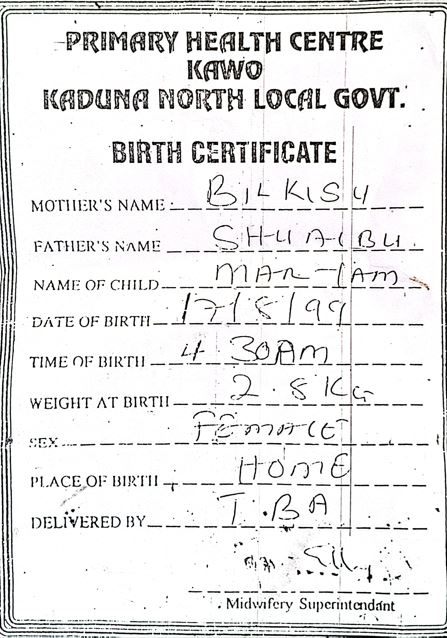 PRIMARY HEALTH CENTRE
KAWO
KADUNA NORTH LOCAL GOVT.
BIRTH CERTIFICATE
MOTHER'S NAME: BILKISU
FATHER'S NAME SHUAIBU
NAME OF CHILD MARIAM
DATE OF BIRTH 17/8/99
TIME OF BIRTH 4.30AM
WEIGHT AT BIRTH 2.8KG
SEX FEMALE
PLACE OF BIRTH HOME
DELIVERED BY T.BA
Midwifery Superintendant